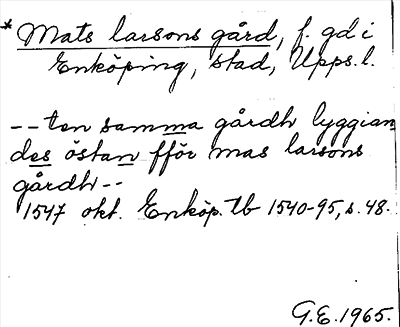 * Mats larsons gård, f. gd i
Enköping, stad, Upps. l.
-- ten samma gårdh lyggian
des östan fför mas larsons
gårdh --
1547 okt. Enköp. tb 1540-95, s. 48.
G.E. 1965.